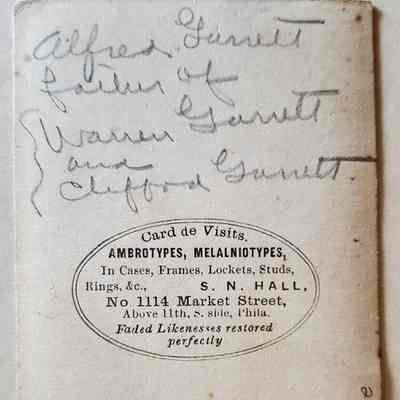 Alfred Garrett
father of
Warren Garrett
and
Clifford Garrett.
Card de Visits.
AMBROTYPES, MELALNIOTYPES,
In Cases, Frames, Lockets, Studs,
Rings, &c., S. N. HALL,
No. 1114 Market Street,
Above 11th, S. side, Phila.
Faded Likenesses restored
perfectly